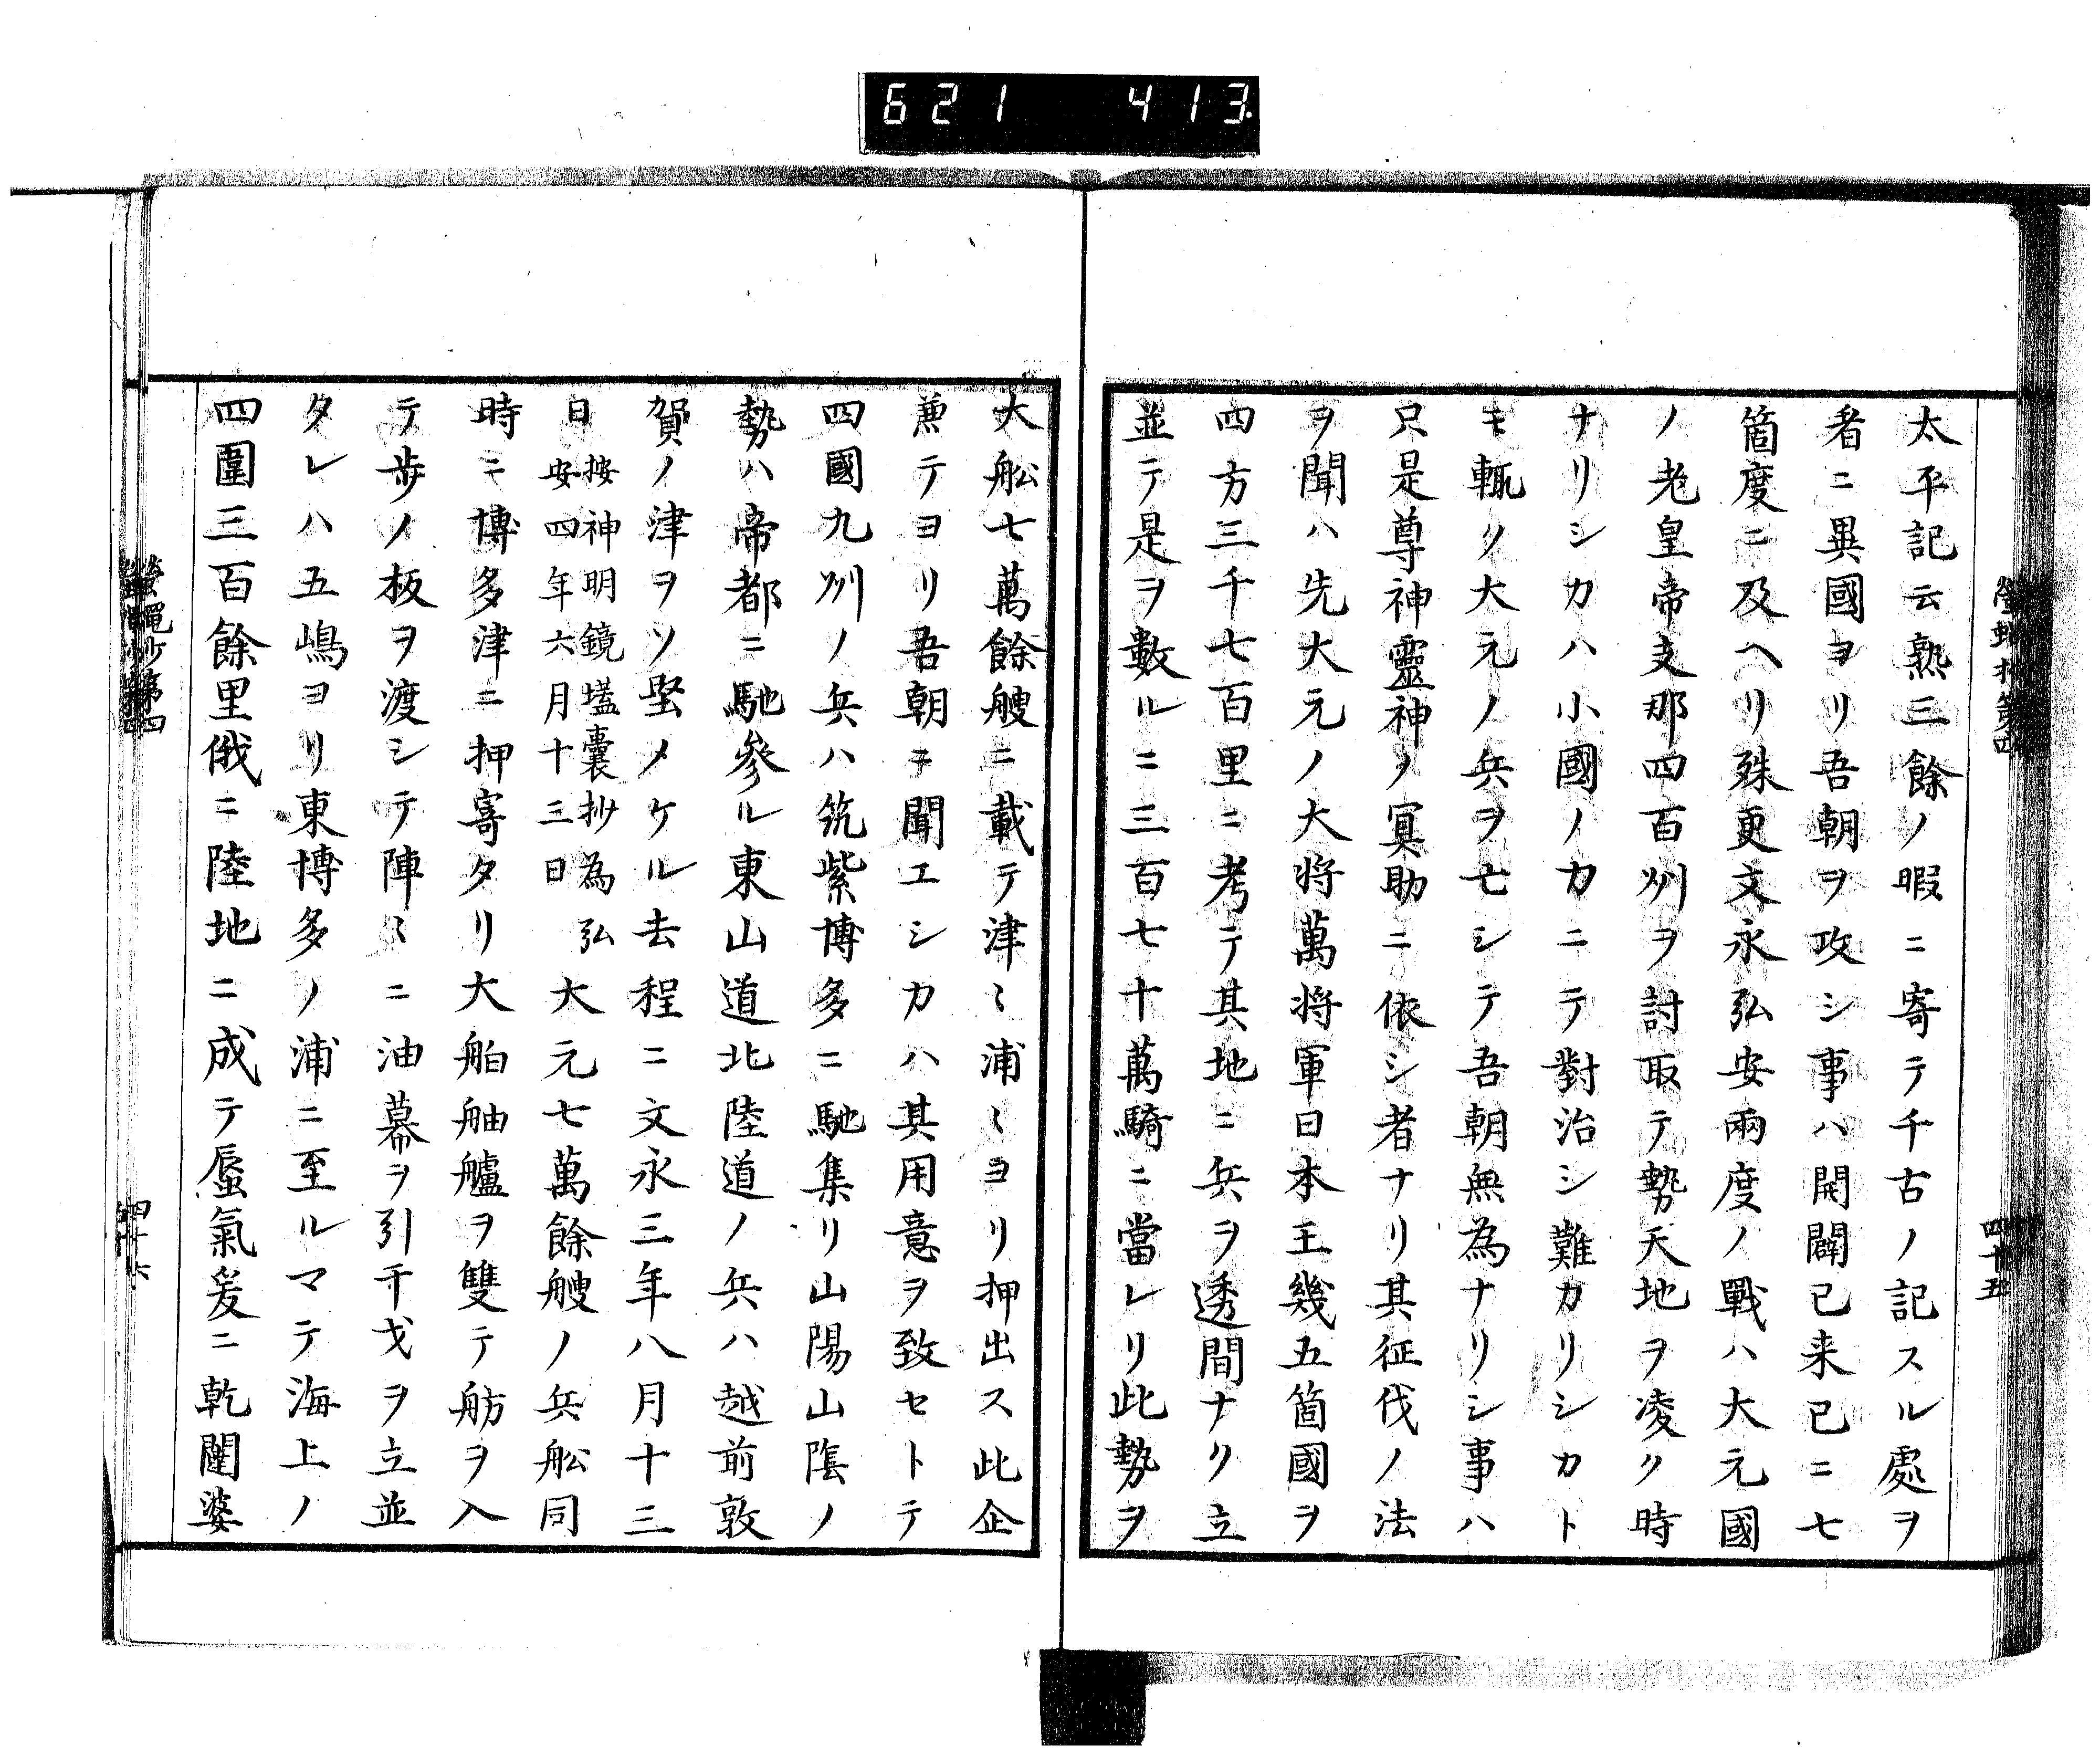 621 413
太平記云熟三餘ノ暇ニ寄テ千古ノ記スル處ヲ
者ニ異國ヨリ吾朝ヲ攻シ事ハ開闢已来已ニ七
箇度ニ及ヘリ殊更文永弘安兩度ノ戰ハ大元國
ノ老皇帝支那四百州ヲ討取テ勢天地ヲ凌ク時
ナリシカハ小國ノ力ニテ對治シ難カリシカト
モ輒ク大元ノ兵ヲ亡シテ吾朝無為ナリシ事ハ
只是尊神靈神ノ冥助ニ依シ者ナリ其征伐ノ法
ヲ聞ハ先大元ノ大将萬将軍日本王幾五箇國ヲ
四方三千七百里ニ考テ其地ニ兵ヲ透間ナク立
並テ是ヲ數ルニ三百七十萬騎ニ當レリ此勢ヲ
四十五
大舩七萬餘艘ニ載テ津〻浦〻ヨリ押出ス此企
兼テヨリ吾朝ニ聞エシカハ其用意ヲ致セトテ
四國九州ノ兵ハ筑紫博多ニ馳集リ山陽山陰ノ
勢ハ帝都ニ馳參ル東山道北陸道ノ兵ハ越前敦
賀ノ津ヲソ堅メケル去程ニ文永三年八月十三
日
按神明鏡壒囊抄為弘
安四年六月十三日
大元七萬餘艘ノ兵舩同
時ニ博多津ニ押寄タリ大舶舳艫ヲ雙テ舫ヲ入
テ歩ノ板ヲ渡シテ陣〻ニ油幕ヲ引干戈ヲ立並
タレハ五嶋ヨリ東博多ノ浦ニ至ルマテ海上ノ
四圍三百餘里俄ニ陸地ニ成テ蜃氣爰ニ乾闥婆
蠅抄第四
四十六